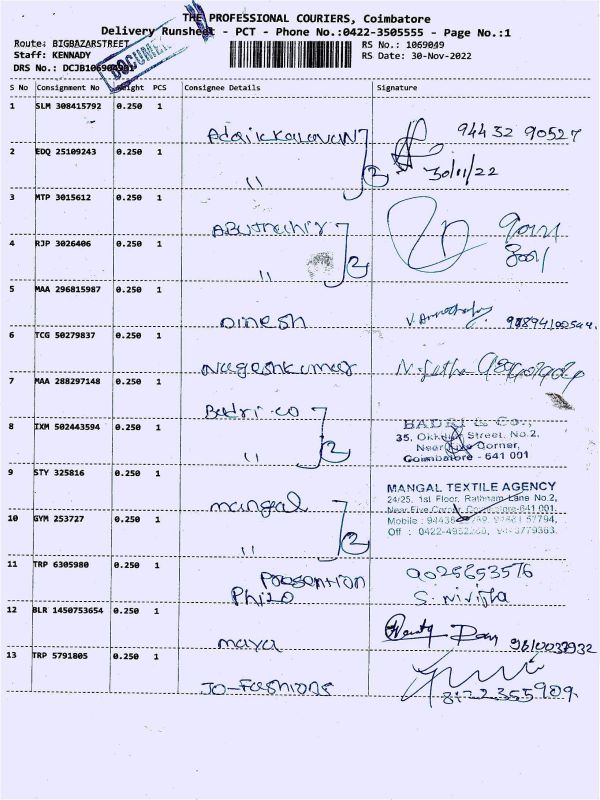 THE PROFESSIONAL COURIERS, Coimbatore
Delivery Runsheet - PCT - Phone No.:0422-3505555 - Page No.:1
Route: BIGBAZARSTREET RS No.: 1069049
Staff: KENNADY RS Date: 30-Nov-2022
DRS No.:
S No Consignment No Weight PCS Consignee Details Signature
1 SLM 308415792 0.250 1
94432 90527
2 EDQ 25109243 0.250 1 " 2 30/11/22
3 MTP 3015612 0.250 1
4 RJP 3026406 0.250 1 " 2
5 MAA 296815987 0.250 1 Dinesh
6 TCG 50279837 0.250 1 Nageshkumar
7 MAA 288297148 0.250 1 Badri co
8 IXM 502443594 0.250 1 " 2
BADRI & Co.,
35, Street, No.2,
Near Five Corner,
Coimbatore - 641 001
9 STY 325816 0.250 1 mangal
MANGAL TEXTILE AGENCY
24/25, 1st Floor, Rathnam Lane No.2,
Near Five Corner, Coimbatore-641 001.
10 GYM 253727 0.250 1 " 2
Mobile :
Off :
11 TRP 6305980 0.250 1 9025653576
12 BLR 1450753654 0.250 1 maya
13 TRP 5791805 0.250 1 Jo-Fashions
8122355909.